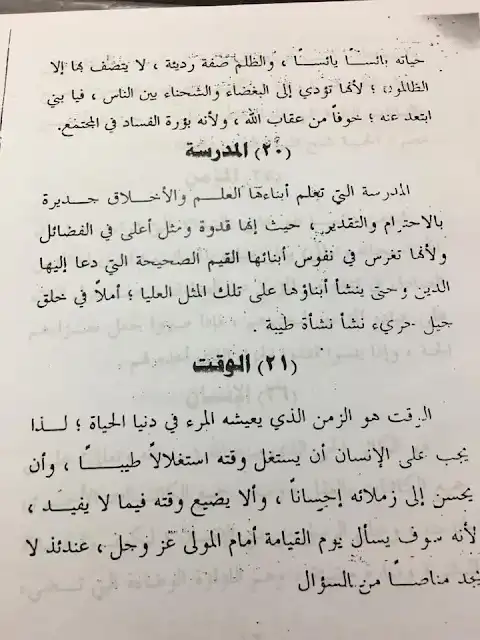 حياته بائسًا يائسًا ، والظلم صفة رديئة ، لا يتصف بها إلا
الظالمون ؛ لأنها تؤدي إلى البغضاء والشحناء بين الناس ، فيا بني
ابتعد عنه ؛ خوفاً من عقاب الله ، ولأنه بؤرة الفساد في المجتمع.
(٢٠) المدرسة
المدرسة التي تعلم أبناءها العلم والأخلاق جديرة
بالاحترام والتقدير ، حيث إنها قدوة ومثل أعلى في الفضائل
ولأنها تغرس في نفوس أبنائها القيم الصحيحة التي دعا إليها
الدين وحتى ينشأ أبناؤها على تلك المثل العليا ؛ أملاً في خلق
جيل جريء نشأ نشأة طيبة .
(٢١) الوقت
الوقت هو الزمن الذي يعيشه المرء في دنيا الحياة ؛ لذا
يجب على الإنسان أن يستغل وقته استغلالاً طيبًا ، وأن
يحسن إلى زملائه إحساناً ، وألا يضيع وقته فيما لا يفيد ،
لأنه سوف يسأل يوم القيامة أمام المولى عز وجل ، عندئذ لا
يجد مناصًا من السؤال